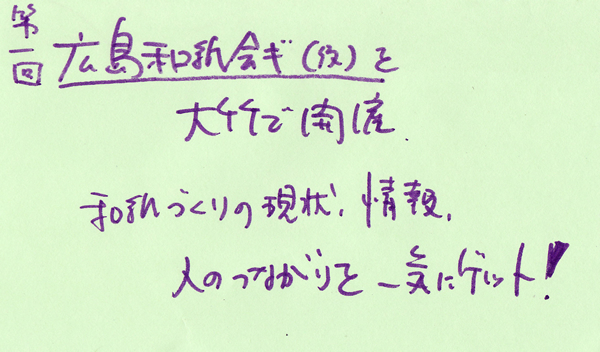 第一回
広島和紙会ギ(仮)を
大竹で開催
和紙づくりの現状、情報、
人のつながりを一気にゲット!